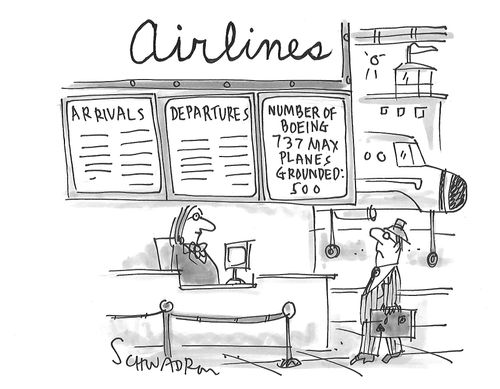 Airlines
ARRIVALS
DEPARTURES
NUMBER OF
BOEING
737 MAX
PLANES
GROUNDED:
500
SCHWADRON